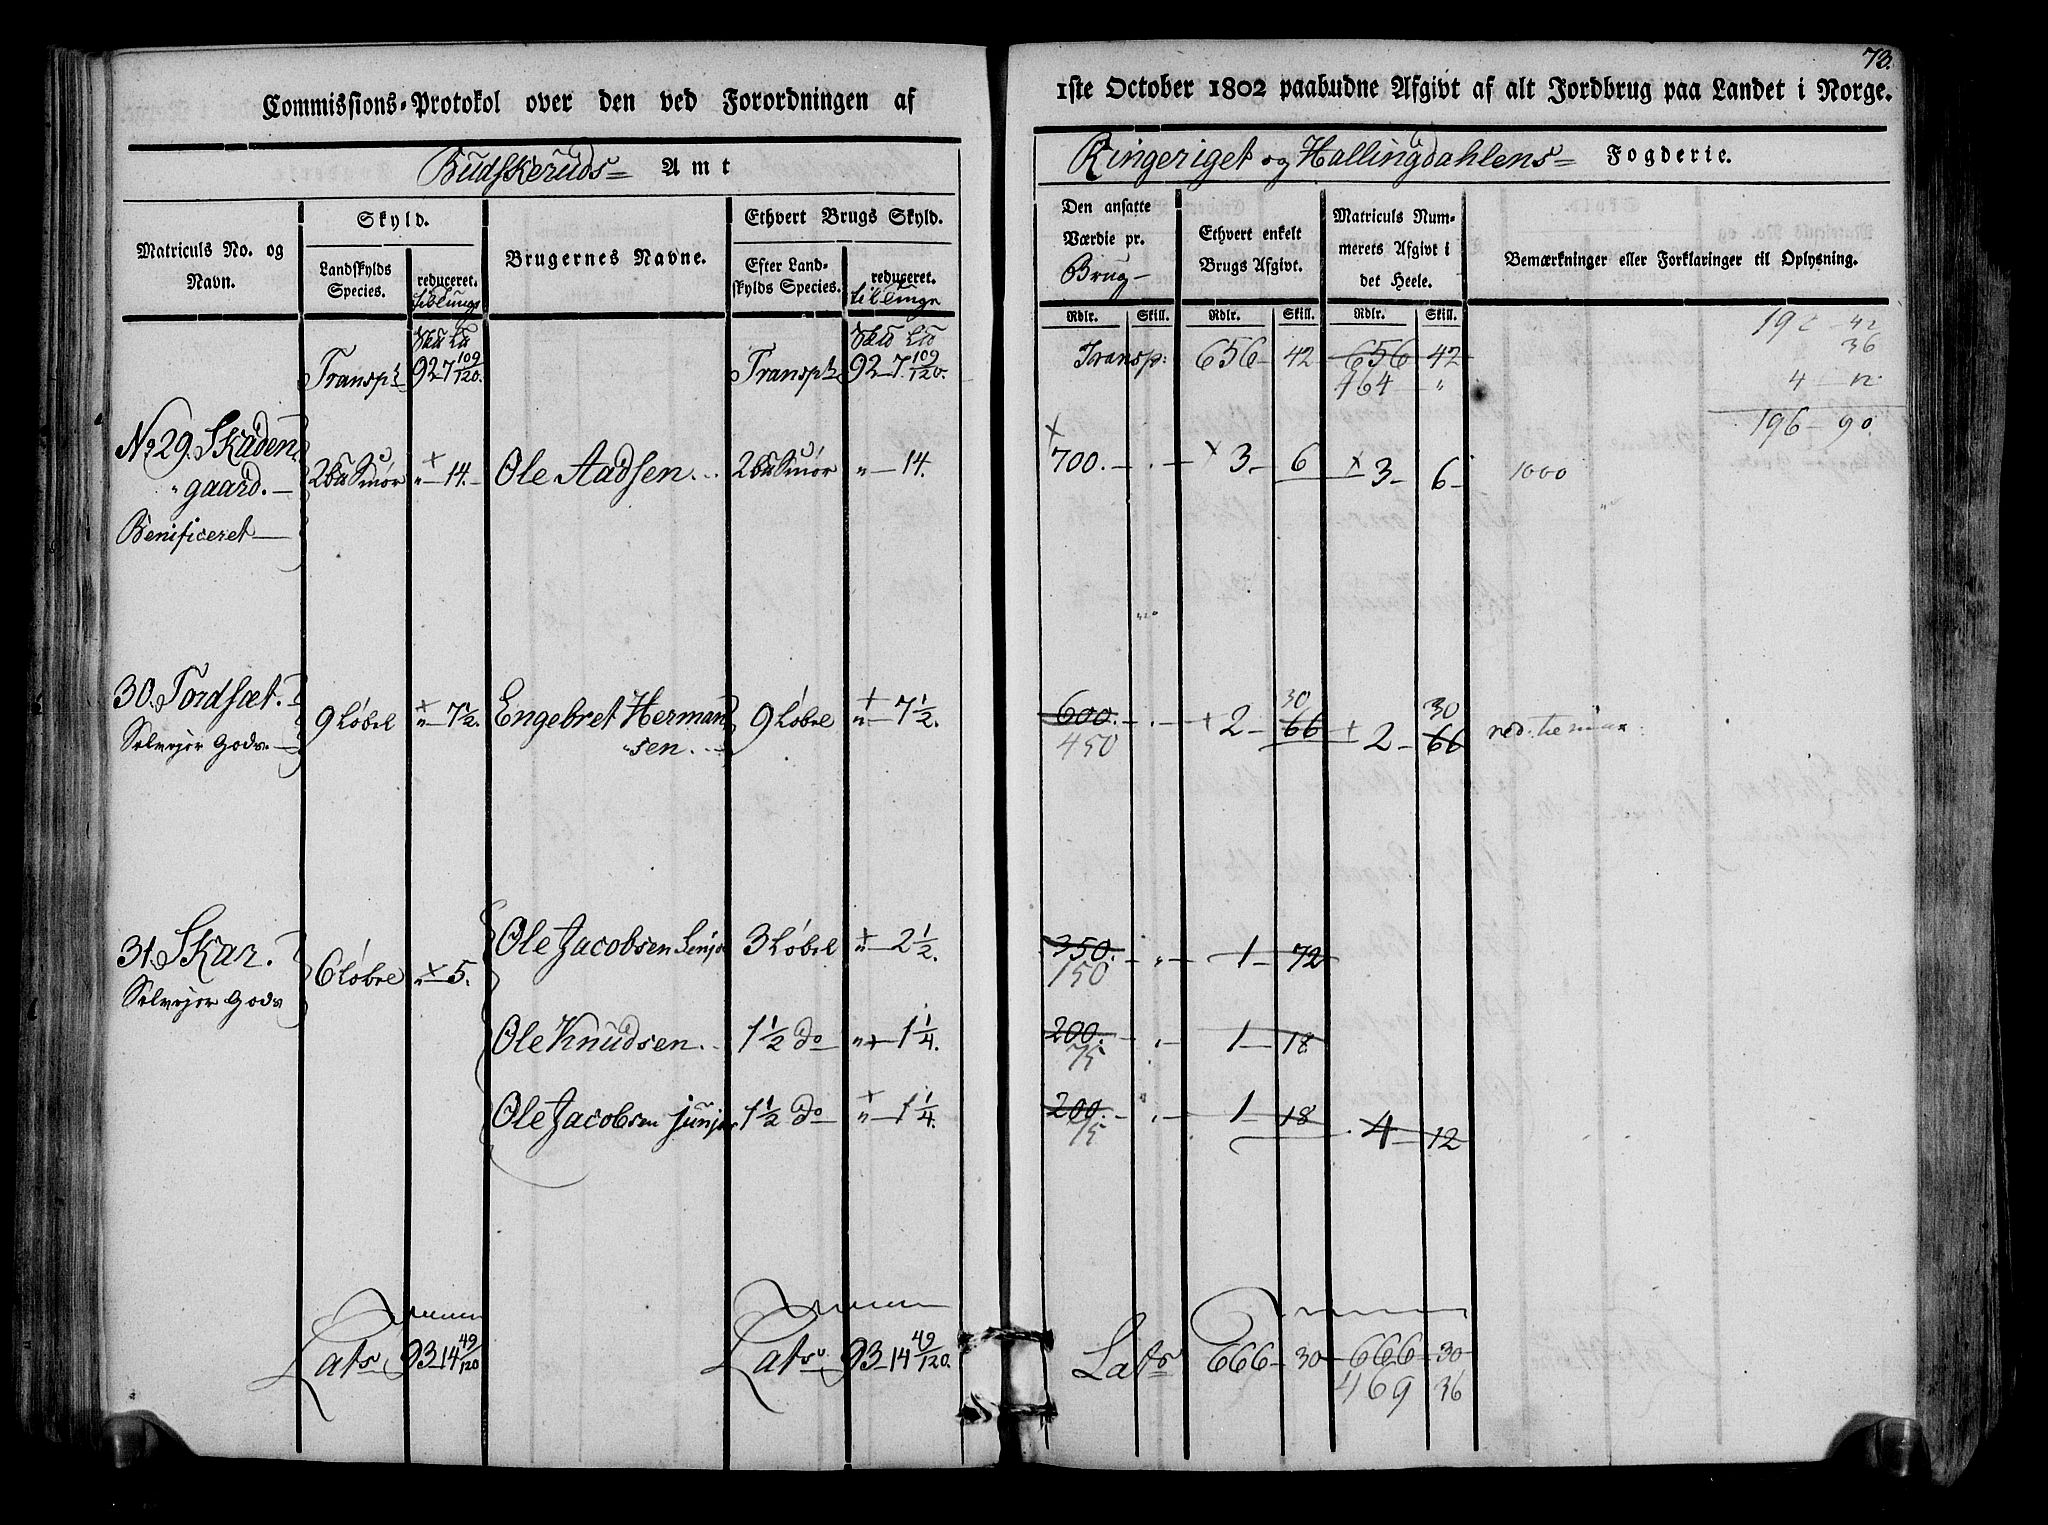 73.
Commissions-Protokol over den ved Forordningen af
1ste October 1802 paabudne Afgivt af alt Jordbrug paa Landet i Norge.
Budskeruds Amt
Ringeriget og Hallingdahlens Fogderie.
Matriculs No. og Navn.
Skyld.
Landskylds Species.
reduceret.
Brugernes Navne.
Ethvert Brugs Skyld.
Efter Landskylds Species.
reduceret.
til Tunge
Den ansatte Værdie pr. Brug
Ethvert enkelt Brugs Afgivt.
Matriculs Nummerets Afgivt i det Heele.
Bemærkninger eller Forklaringer til Oplysning.
Rdlr. Skill. Rdlr. Skill. Rdlr. Skill.
Transpt 92 7 109/120. Transpt 92 7 109/120. Transp: 656 42 656 42
464 "
192 42
36
4 12
196 90.
No 29. Skaden
gaard.
Benificeret
2 Smör " 14. Ole Aadsen. 2 Smör " 14. 700. 3 6 3 6 1000
30. Tordsæt.
Selvejer Gods
9 Løbel " 7 1/2. Engebret Herman
sen. 9 Løbel " 7 1/2. 600. 2 66 2 66
450 30 30
31. Skar.
Selvejer Gods
6 Løbel " 5. Ole Jacobsen Senjor 3 Løbel " 2 1/2. 350. 1 72
150
Ole Knudsen. 1 1/2 Do " 1 1/4. 200. 1 18
75
Ole Jacobsen junjor 1 1/2 Do " 1 1/4. 200. 1 18 4 12
75
Lats 93 14 49/120 Lats 93 14 49/120. Lats 666 30 666 30
469 36